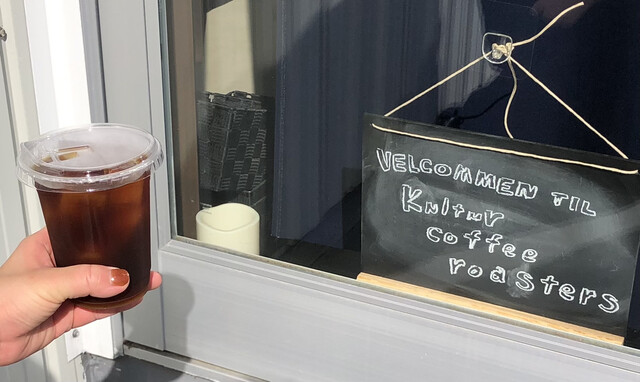 VELCOMMEN TIL
Kultur
Coffee
roasters